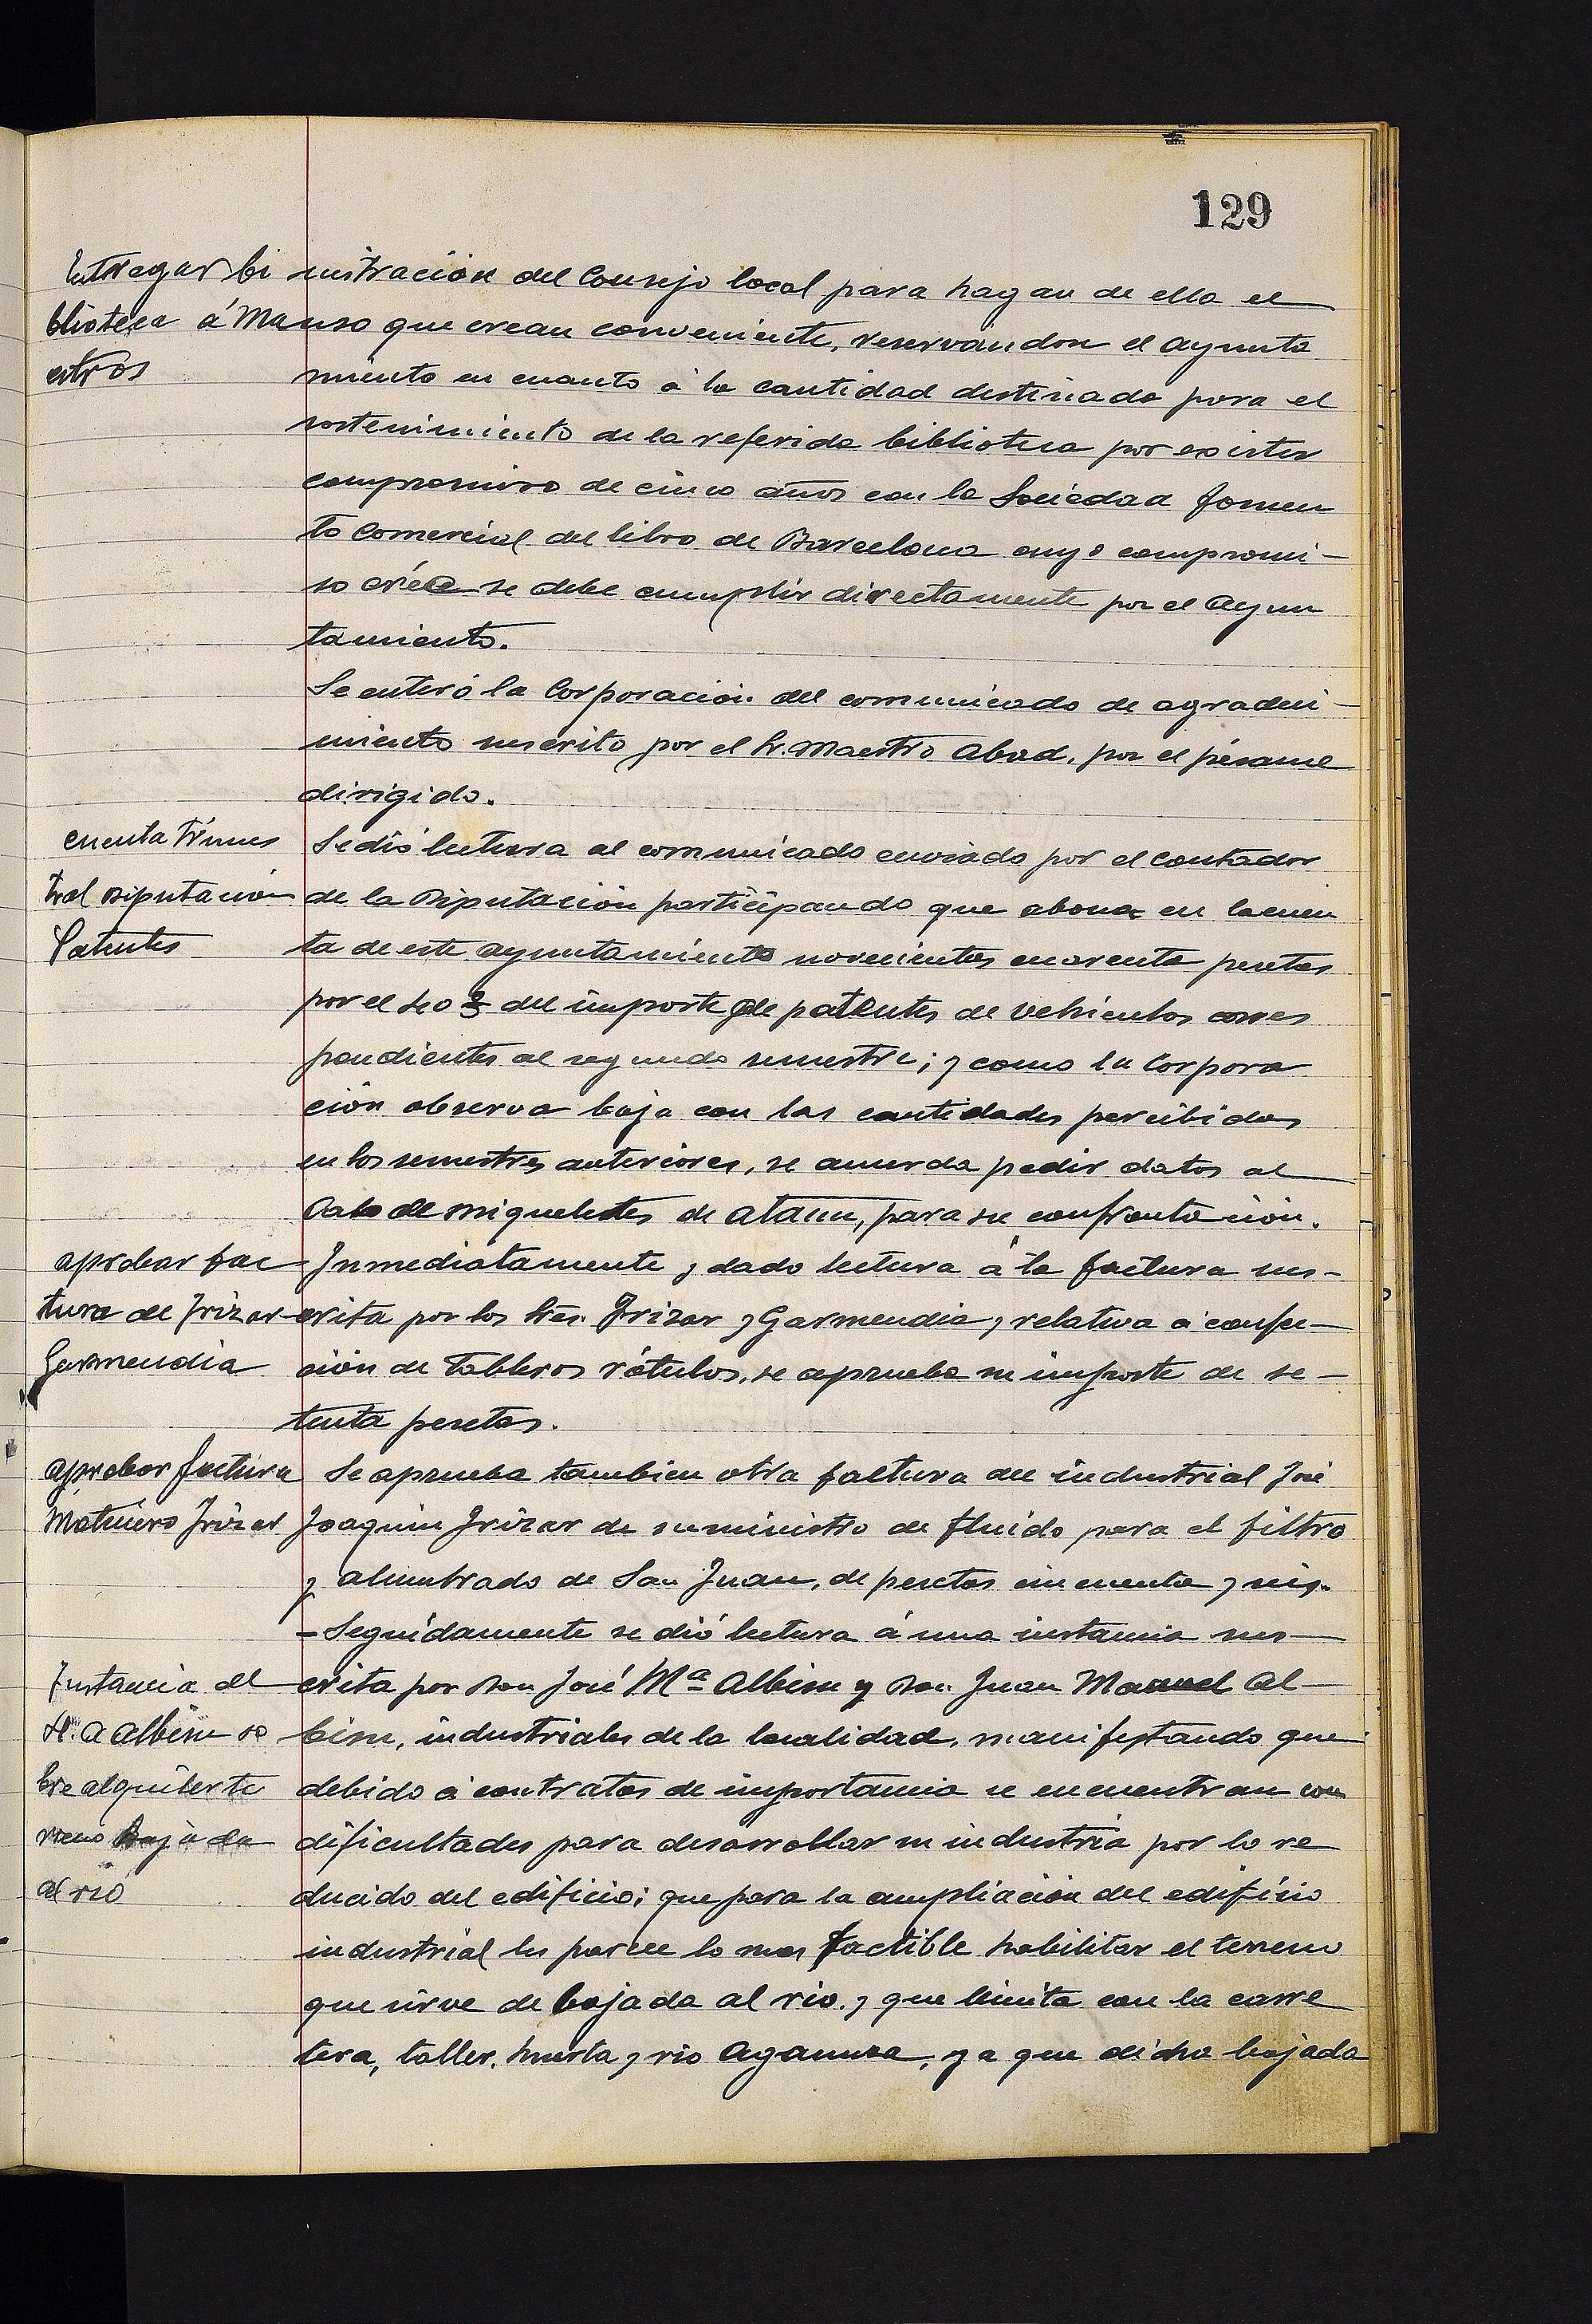 129
Entregar bi
blioteca á Ma
estros
nistración del Consejo local para hagan de ella el
uso que crean conveniente, reservandose el Ayunta
miento en cuanto á la cantidad destinada para el
sostenimiento de la referida biblioteca por existir
compromiso de cinco años con la Sociedad Fomen
to Comercial del libro de Barcelona cuyo compromi-
so crée se debe cumplir directamente por el Ayun
tamiento.
Se enteró la Corporación del comunicado de agradeci-
miento suscrito por el Sr. Maestro Abad, por el pésame
dirigido.
cuenta trimes
tral Diputación
Patentes
Se dió lectura al comunicado enviado por el contador
de la Diputación participando que abona en la cuen
ta de este ayuntamiento novecientas cuarenta pesetas
por el del importe de patentes de vehiculos corres
pondientes al segundo semestre; y como la Corpora
ción observa baja con las cantidades percibidas
en los semestres anteriores, se acuerda pedir datos al
Cabo de Miqueletes de Ataun, para su confrontación.
aprobar fac
tura de Irizar
Garmendia
Inmediatamente y dado lectura á la factura sus-
crita por los Sres. Irizar y Garmendia, relativa á confec-
ción de tableros rótulos, se aprueba su importe de se-
tenta pesetas.
aprobar factura
Molinero Irizar
Se aprueba tambien otra factura del industrial José
Joaquin Irizar de suministro de fluido para el filtro
y alumbrado de San Juan, de pesetas cincuenta y seis.
- Seguidamente se dió lectura á una instancia sus-
Instancia del
Sr. Albisu so
bre alquiler te
rreno bajada
al rio
crita por Don José Mª Albisu y Don Juan Manuel Al-
bisu, industriales de la localidad, manifestando que
debido á contratos de importancia se encuentran con
dificultades para desarrollar su industria por lo re
ducido del edificio; que para la ampliación del edificio
industrial les parece lo mas factible habilitar el terreno
que sirve de bajada al rio, y que limita con la carre
tera, taller, huerta y rio Agaunza, ya que dicha bajada